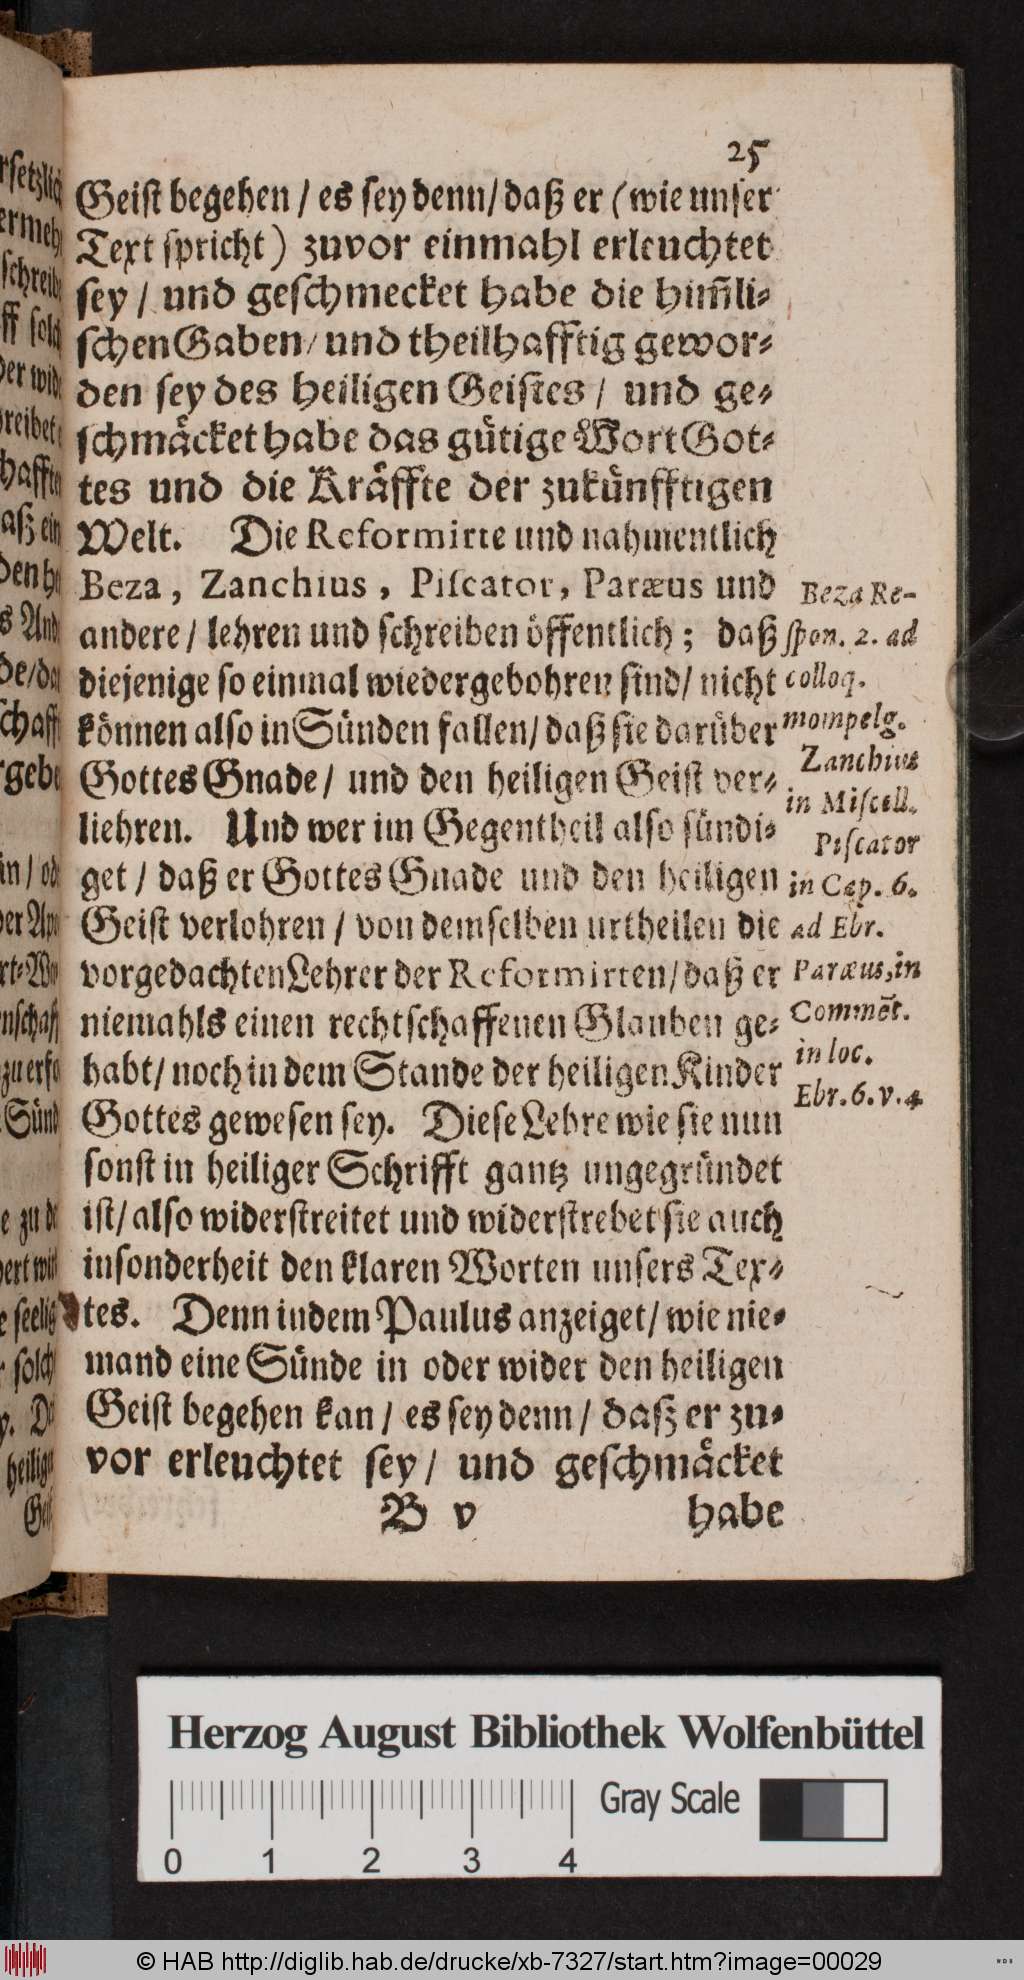 25
Geist begehen / es sey denn / daß er (wie unser
Text spricht) zuvor einmahl erleuchtet
sey / und geschmecket habe die him̃li-
schen Gaben / und theilhafftig gewor-
den sey des heiligen Geistes / und ge-
schmäcket habe das gütige Wort Got-
tes und die Kräffte der zukünfftigen
Welt. Die Reformirte und nahmentlich
Beza, Zanchius, Piscator, Paræus und
andere / lehren und schreiben öffentlich; daß
diejenige so einmal wiedergebohren sind / nicht
können also in Sünden fallen / daß sie darüber
Gottes Gnade / und den heiligen Geist ver-
liehren. Und wer im Gegentheil also sündi-
get / daß er Gottes Gnade und den heiligen
Geist verlohren / von demselben urtheilen die
vorgedachten Lehrer der Reformirten / daß er
niemahls einen rechtschaffenen Glauben ge-
habt / noch in dem Stande der heiligen Kinder
Gottes gewesen sey. Diese Lehre wie sie nun
sonst in heiliger Schrifft gantz ungegründet
ist / also widerstreitet und widerstrebet sie auch
insonderheit den klaren Worten unsers Tex-
tes. Denn indem Paulus anzeiget / wie nie-
mand eine Sünde in oder wider den heiligen
Geist begehen kan / es sey denn / daß er zu-
vor erleuchtet sey / und geschmäcket
B v habe
Beza Re-
spon. 2. ad
colloq.
mompelg.
Zanchius
in Miscell.
Piscator
in Cap. 6.
ad Ebr.
Paræus, in
Commēt.
in loc.
Ebr. 6. v. 4.
Herzog August Bibliothek Wolfenbüttel
Gray Scale
0 1 2 3 4
© HAB http://diglib.hab.de/drucke/xb-7327/start.htm?image=00029